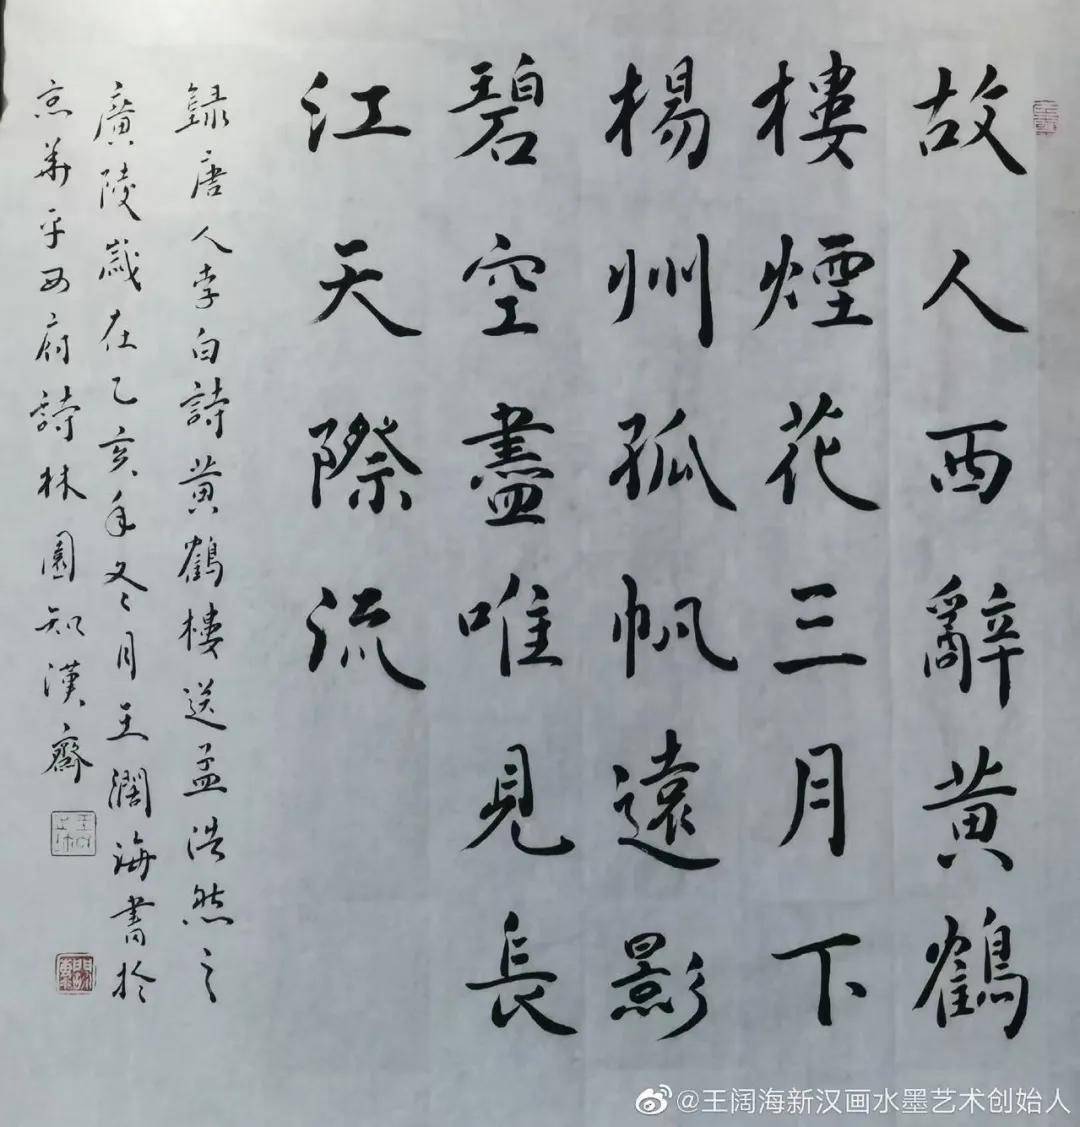 故人西辭黄鶴
樓煙花三月下
楊州孤帆遠影
碧空盡唯見長
江天際流
録唐人李白詩黄鶴樓送孟浩然之
廣陵歲在乙亥年冬月王濶海書於
京華平西府詩林園知漢齋
@王阔海新汉画水墨艺术创始人